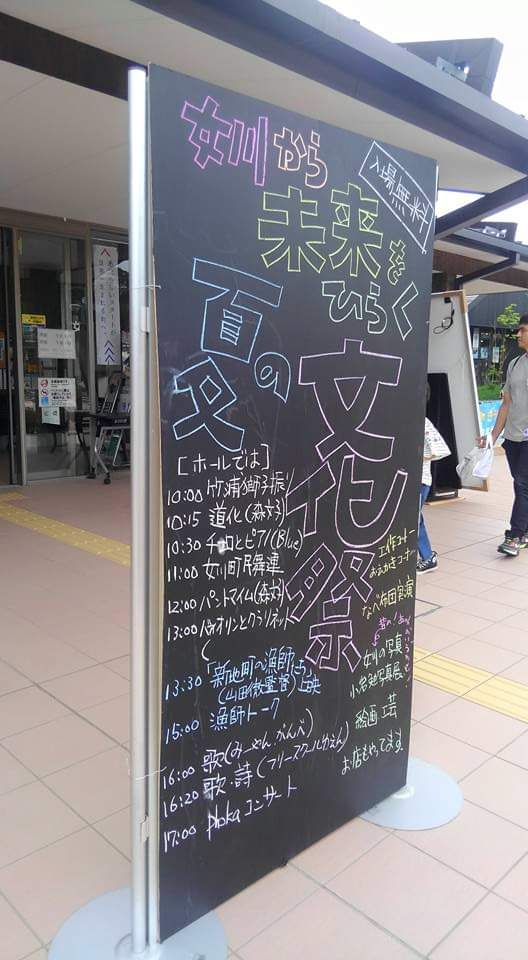 女川から
未来を
ひらく
入場無料
夏の
文化祭
[ホールでは]
10:00 竹浦獅子振り
10:15 道化(森文子)
10:30 チェロとピアノ(Blue)
11:00 女川町民舞連
12:00 パントマイム(森文子)
13:00 バイオリンとクラリネット
13:30 「新地町の漁師たち」
(山田徹監督)上映
15:00 漁師トーク
16:00 歌(みーやん、がんべ)
16:20 歌・詩(フリースクールかえん)
17:00 phokaコンサート
工作コーナー
おえかきコーナー
なべ布団実演
女川の写真
小岩勉写真展
絵画
芸
お店もやってます